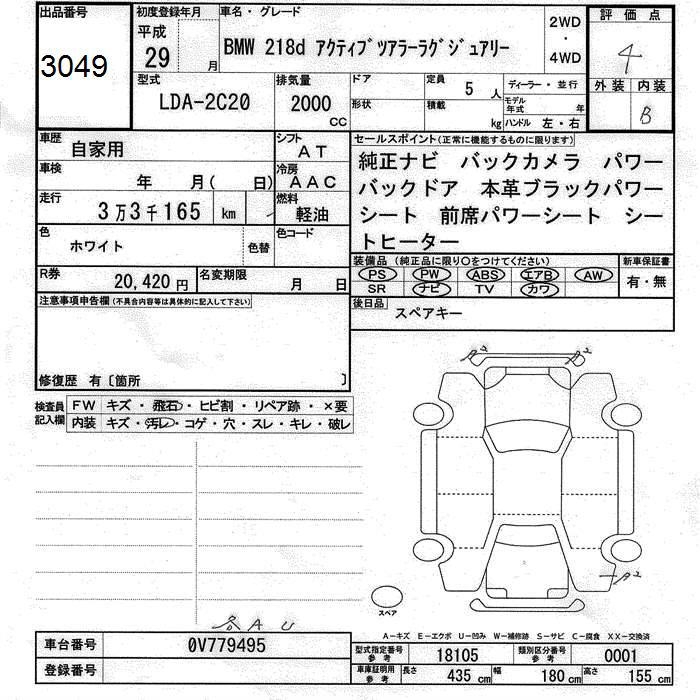 出品番号
3049
初度登録年月
平成
29 月
車名・グレード
BMW 218d アクティブツアラーラグジュアリー
2WD
・
4WD
評価点
4
外装 内装
B
型式
LDA-2C20
排気量
2000
CC
ドア
形状
定員
5 人
積載
kg
ディーラー・並行
モデル年式 年
ハンドル 左・右
車歴
自家用
シフト
AT
車検
年 月( 日)
冷房
AAC
走行
3万3千165 km
燃料
軽油
色
ホワイト
色替
色コード
R券
20,420円
名変期限
月 日
セールスポイント(正常に機能するものに限ります)
純正ナビ バックカメラ パワー
バックドア 本革ブラックパワー
シート 前席パワーシート シー
トヒーター
装備品 (純正品に限り○をつけてください)
PS PW ABS エアB AW
SR ナビ TV カワ
新車保証書
有・無
後日品
スペアキー
注意事項申告欄(不具合内容等は具体的に記入して下さい)
修復歴 有〔箇所 〕
検査員
記入欄
FW キズ・飛石・ヒビ割・リペア跡・×要
内装 キズ・汚レ・コゲ・穴・スレ・キレ・破レ
A2 A2
A2
スペア
各AU
A-キズ E-エクボ U-凹み W-補修跡 S-サビ C-腐食 XX-交換済
車台番号
0V779495
登録番号
型式指定番号
参考
18105
類別区分番号
参考
0001
車庫証明用
参考
長さ
435 cm
幅
180 cm
高さ
155 cm